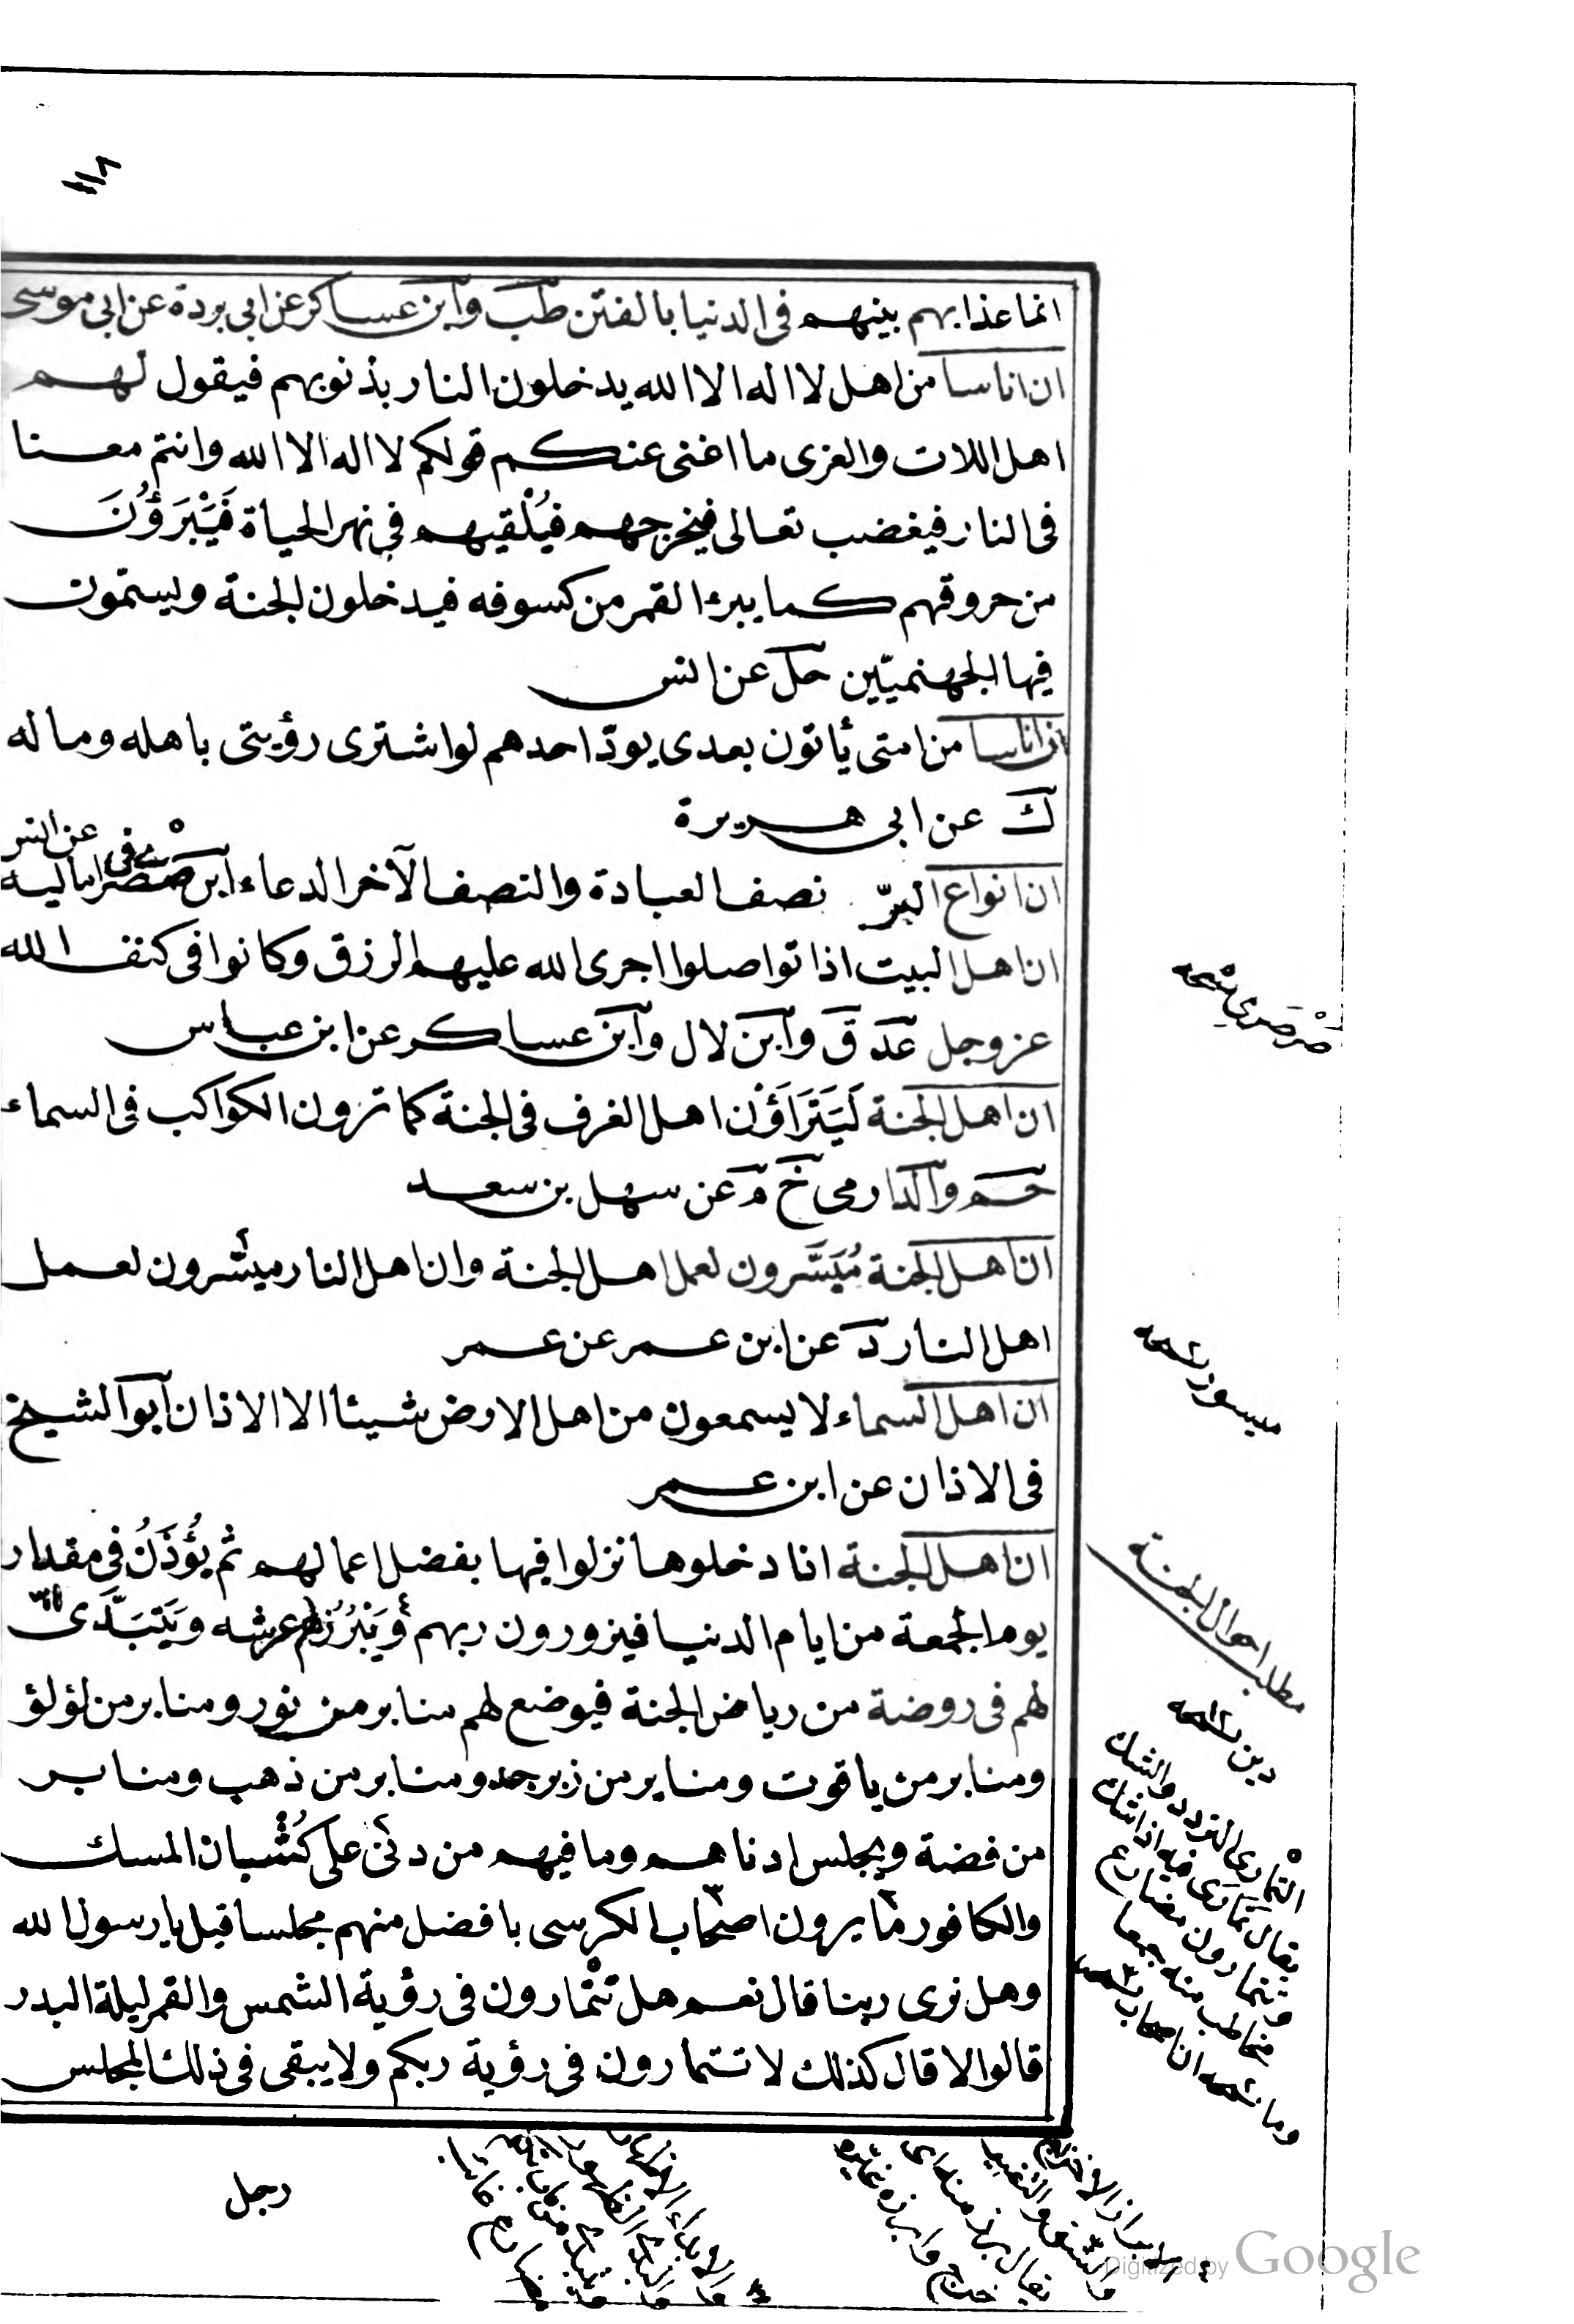 ١١٨
انما عذابهم بينهم فى الدنيا بالفتن طب وابن عساكر عن ابى بردة عن ابى موسى
ان اناسا من اهل لا اله الا الله يدخلون النار بذنوبهم فيقول لهم
اهل اللات والعزى ما اغنى عنكم قولكم لا اله الا الله وانتم معنا
فى النار فيغضب تعالى فيخرجهم فيُلْقيهم فى نهر الحياة فَيَبْرَؤُنَ
من حروقهم كما يبرء القمر من كسوفه فيدخلون الجنة ويسمّون
فيها الجهنميّين حل عن انس
ان اناسا من امتى يأتون بعدى يودّ احدهم لو اشترى رؤيتى باهله وماله
ك عن ابى هريرة
ان انواع البرّ نصف العبادة والنصف الآخر الدعاء ابن صصرى فى اماليه عن انس
ان اهل البيت اذا تواصلوا اجرى الله عليهم الرزق وكانوا فى كنف الله
عز وجل عد ق وابن لال وابن عساكر عن ابن عباس
ان اهل الجنة لَيَتَرَاؤَن اهل الغرف فى الجنة كما ترون الكواكب فى السماء
حم والدارمى خ م عن سهل بن سعد
ان اهل الجنة مُيَسَّرون لعمل اهل الجنة وان اهل النار ميسّرون لعمل
اهل النار د عن ابن عمر عن عمر
ان اهل السماء لا يسمعون من اهل الارض شيئا الا الاذان ابو الشيخ
فى الاذان عن ابن عمر
ان اهل الجنة اذا دخلوها نزلوا فيها بفضل اعمالهم ثم يُؤْذَنُ فى مقدار
يوم الجمعة من ايام الدنيا فيزورون ربهم وَيَبْرُزُ لهم عرشه ويَتَبَدَّى
لهم فى روضة من رياض الجنة فيوضع لهم منابر من نور ومنابر من لؤلؤ
ومنابر من ياقوت ومنابر من زبرجد ومنابر من ذهب ومنابر
من فضة ويجلس ادناهم وما فيهم من دنى على كُثْبان المسك
والكافور ما يرون اصحاب الكرسى بافضل منهم مجلسا قيل يا رسول الله
وهل نرى ربنا قال نعم هل تتمارون فى رؤية الشمس والقمر ليلة البدر
قالوا لا قال كذلك لا تتمارون فى رؤية ربكم ولا يبقى فى ذلك المجلس
رجل
مطلب احوال الجنة
Digitized by Google